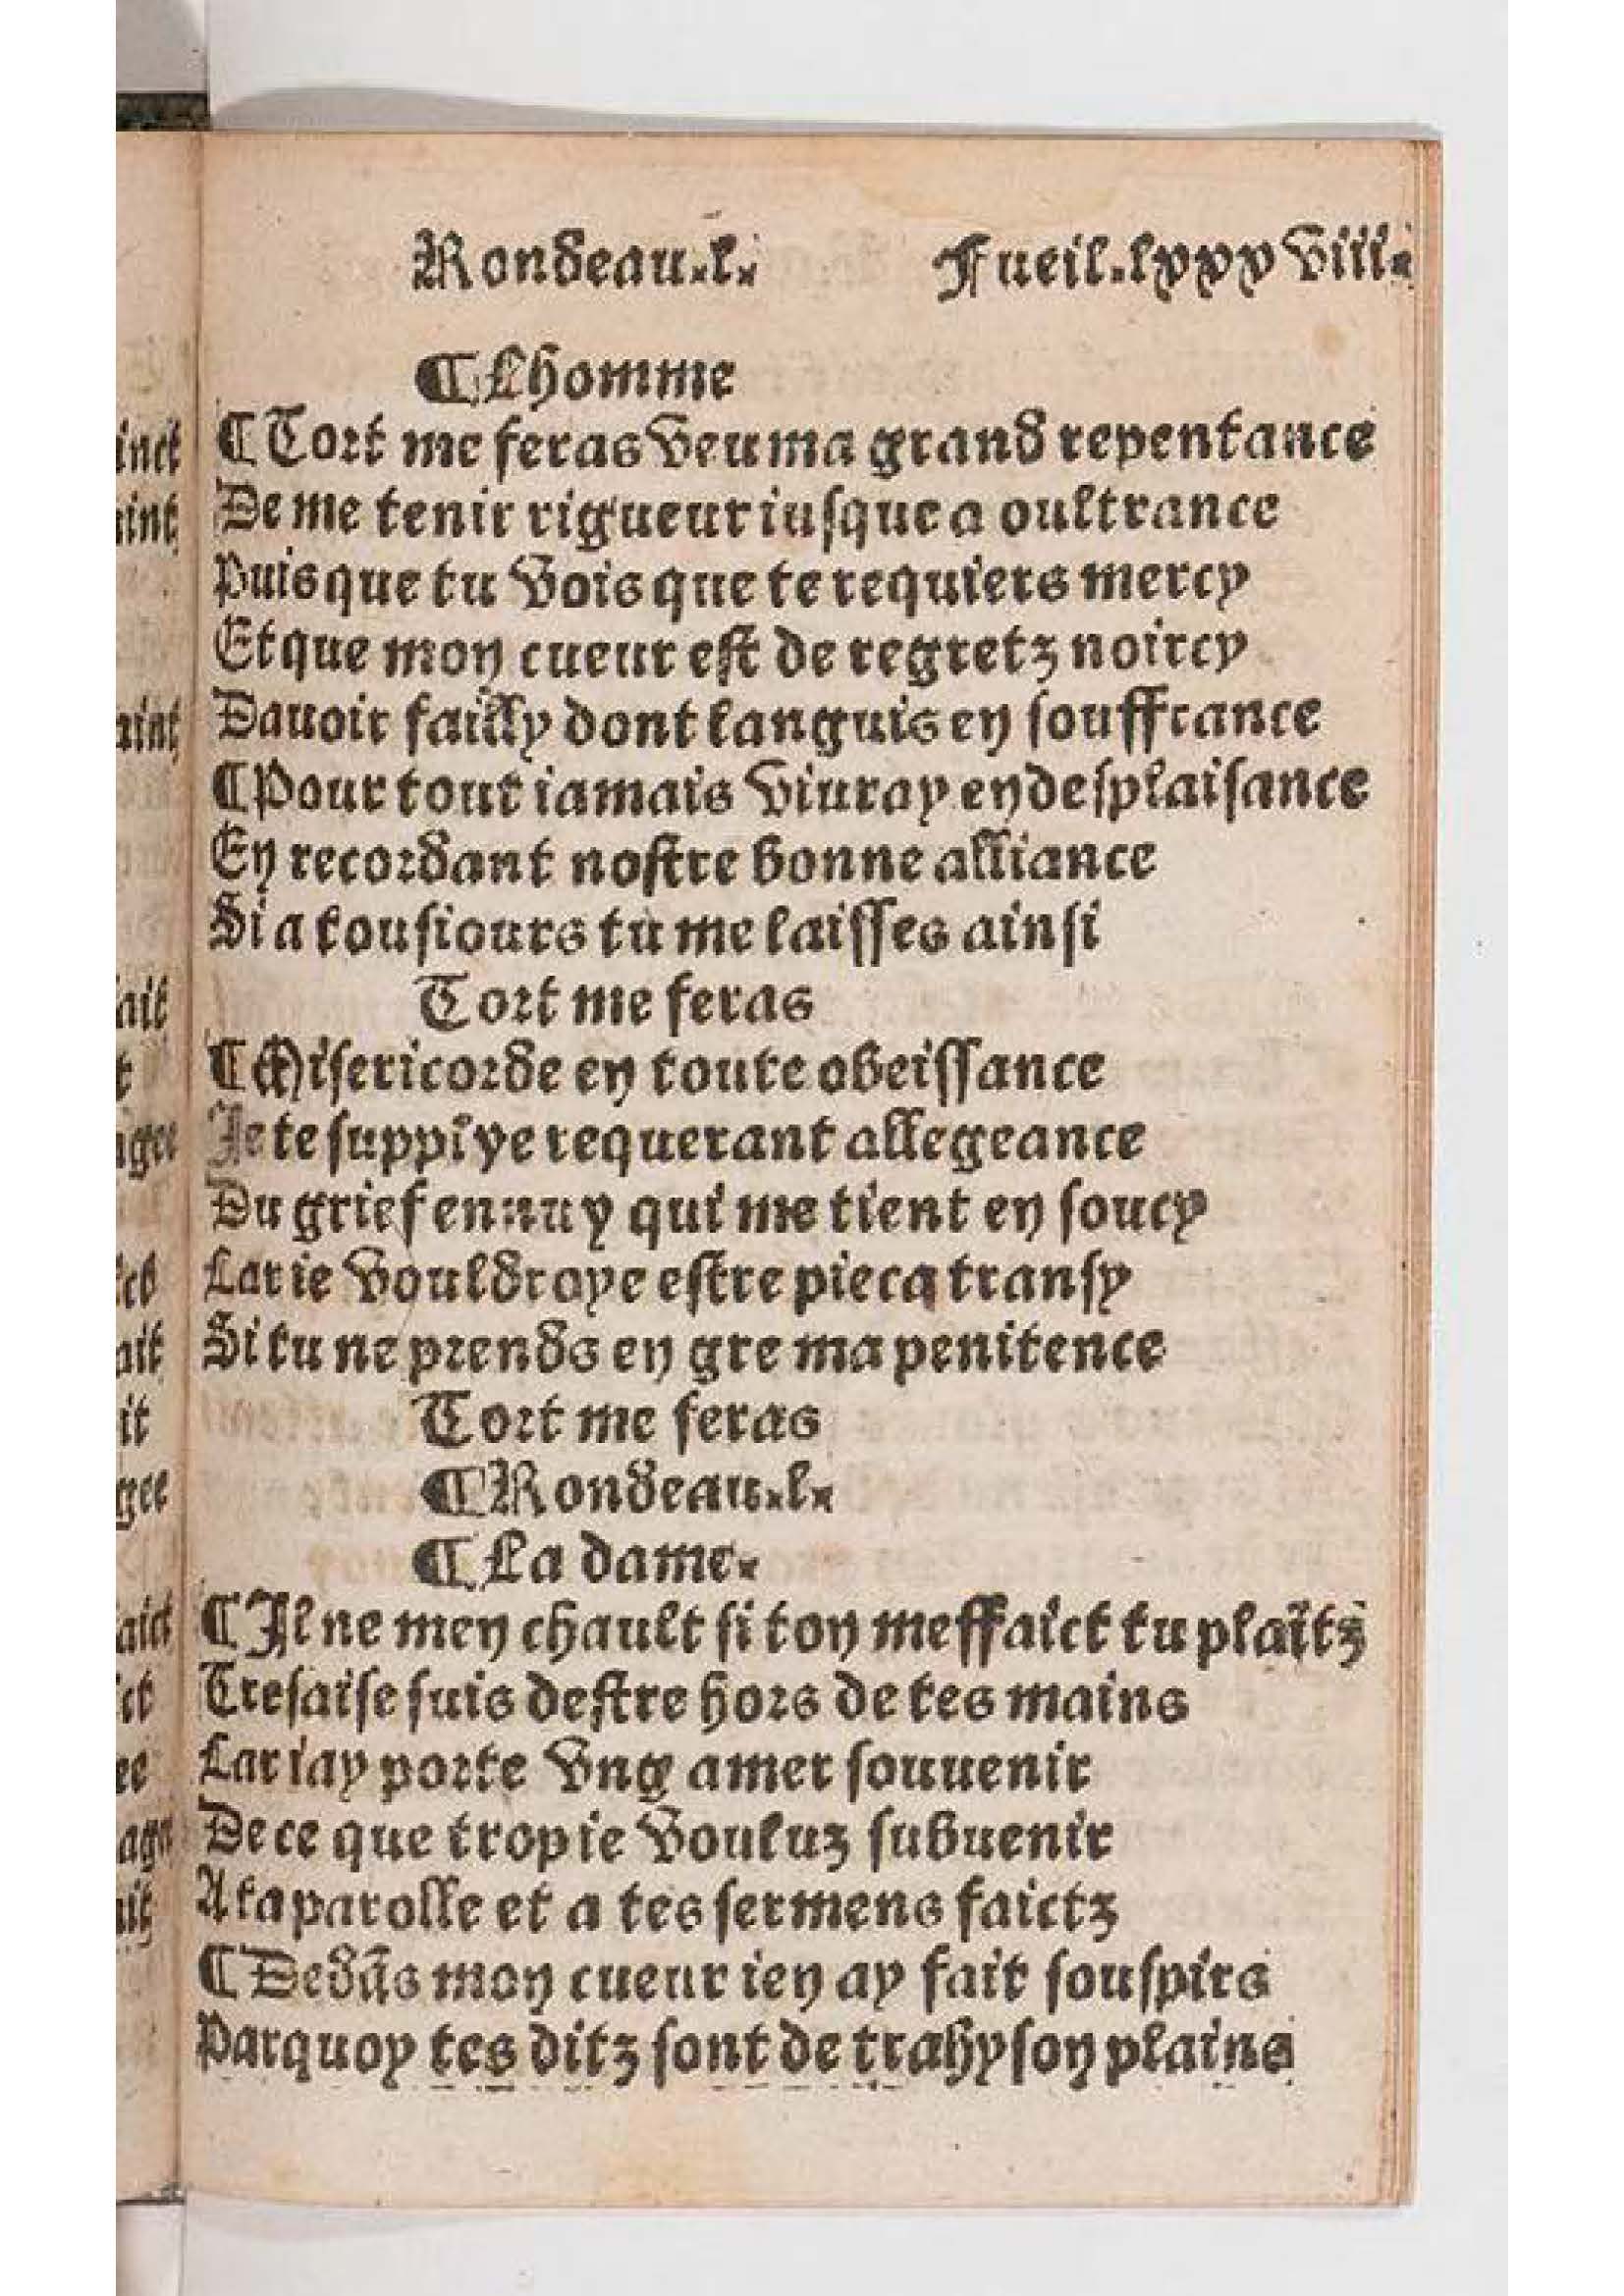 Rondeau.l. Fueil.lxxxviii.
¶Lhomme
¶Tort me feras veu ma grand repentance
De me tenir rigueur iusque a oultrance
Puis que tu vois que te requiers mercy
Et que mon cueur est de regretz noircy
Dauoir failly dont languis en souffrance
¶Pour tout iamais viuray en desplaisance
En recordant nostre bonne alliance
Si a tousiours tu me laisses ainsi
Tort me feras
¶Misericorde en toute obeissance
Ie te supplye requerant allegeance
Du grief ennuy qui me tient en soucy
Car ie vouldroye estre pieca transy
Si tu ne prends en gre ma penitence
Tort me feras
¶Rondeau.l.
¶La dame.
¶Il ne men chault si ton meffaict tu plaītz
Tresaise suis destre hors de tes mains
Car iay porte vng amer souuenir
De ce que trop ie vouluz subuenir
A ta parolle et a tes sermens faictz
¶Dedās mon cueur ien ay fait souspirs
Parquoy tes ditz sont de trahyson plains
inct
aint
aint
ait
t
agee
ait
it
gee
aict
ict
ee
age
ait